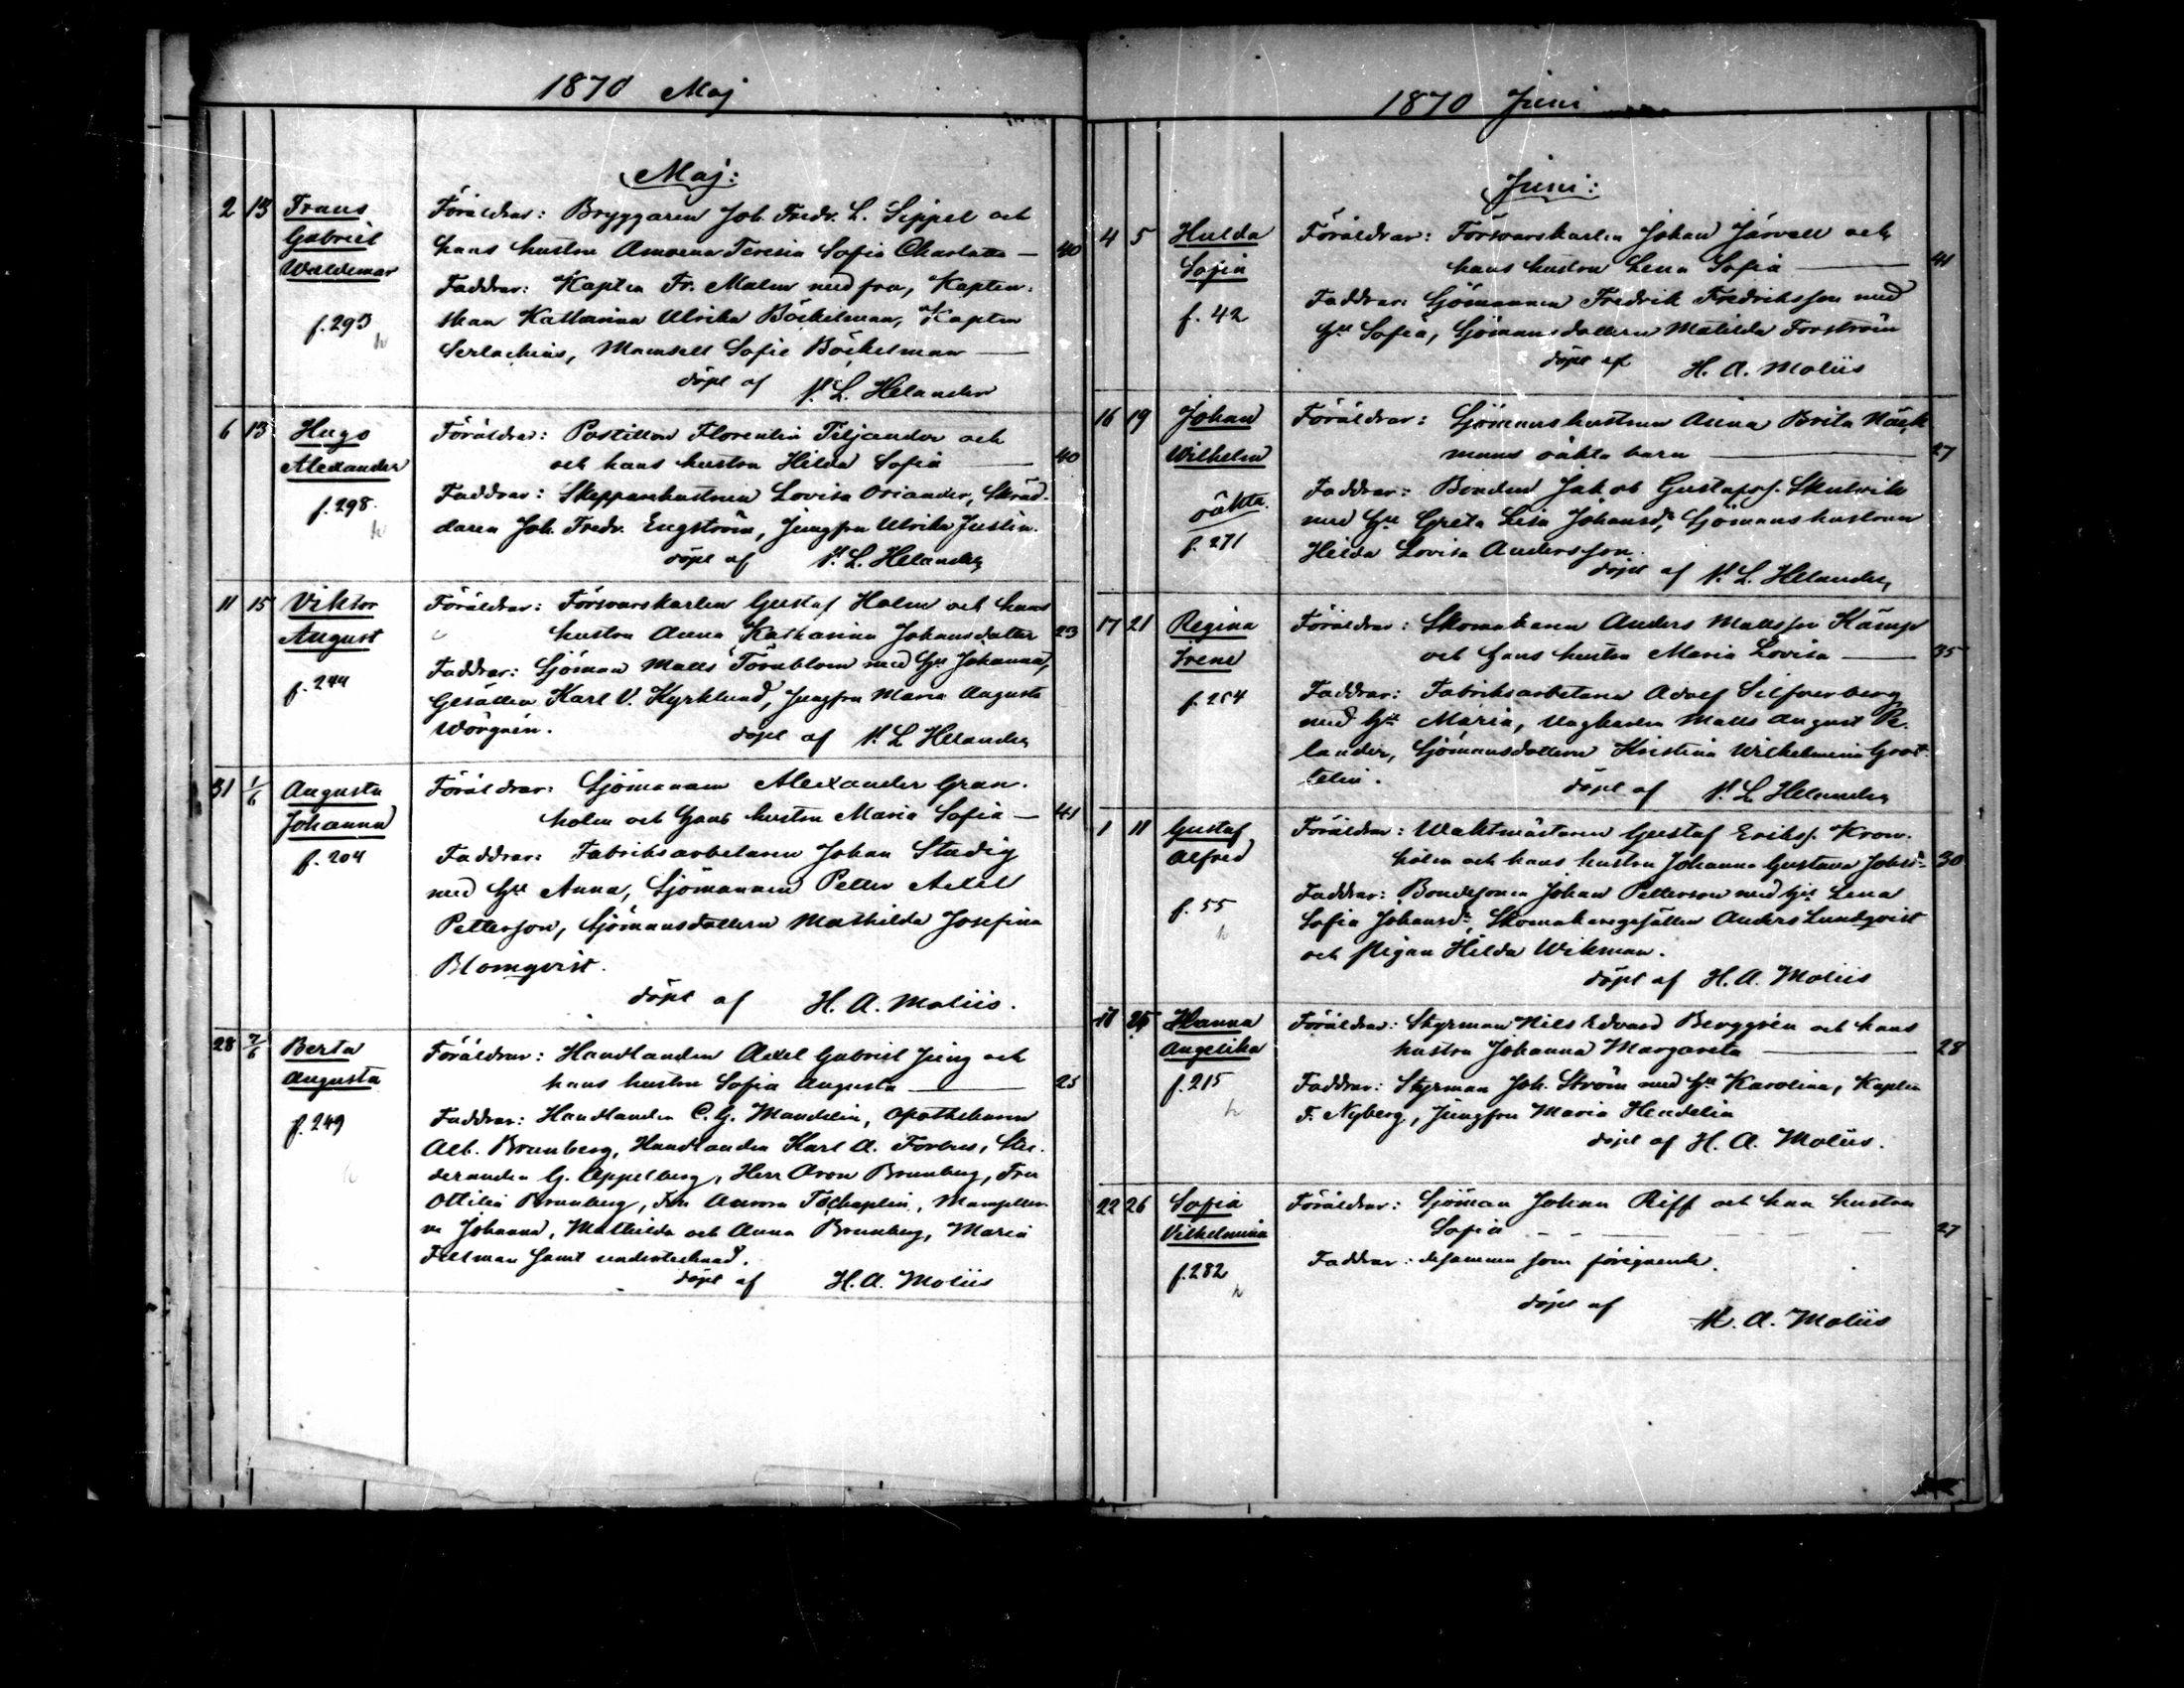 1870 Maj
Maj:
2 13 Frans Föräldrar: Bryggaren Joh. Fredr. L. Sippel och
Gabriel hans hustru Amoena Teresia Sofia Charlotta — 40
Waldemar Faddrar: Kapten Fr. Malm med fru, Kapten-
f. 293 skan Katharina Ulrika Böckelman, Kapten
Serlachius, Mamsell Sofie Böckelman —
döpt af N. L. Helander
6 13 Hugo Föräldrar: Postillon Florentin Piljander och
Alexander och hans hustru Hilda Sofia — 40
f. 298. Faddrar: Skepparehustrun Lovisa Osiander, Skräd-
daren Joh. Fredr. Engström, Jungfru Ulrika Justin.
döpt af N. L. Helander
11 15 Viktor Föräldrar: Försvarskarlen Gustaf Holm och hans
August hustru Anna Katharina Johansdotter 23
f. 244 Faddrar: Sjöman Matts Törnblom med Hu Johanna,
Gesällen Karl V. Kyrklund, Jungfru Maria Augusta
Wörgrén. döpt af N. L. Helander
31 1/6 Augusta Föräldrar: Sjömannen Alexander Gran-
Johanna holm och hans hustru Maria Sofia — 41
f. 204 Faddrar: Fabriksarbetaren Johan Stadig
med Hu Anna, Sjömannen Petter Axel
Petterson, Sjömansdottern Mathilda Josefina
Blomqvist.
döpt af H. A. Moliis.
28 7/6 Berta Föräldrar: Handlanden Axel Gabriel Jung och
Augusta hans hustru Sofia Augusta — 25
f. 249 Faddrar: Handlanden C. G. Mandelin, Apothekaren
Alb. Brunberg, Handlanden Karl A. Forbus, Stu-
deranden G. Appelberg, Herr Aron Brunberg, Fru
Ottilia Brunberg, Fru Aurora Tschaplin, Mamseller-
na Johanna, Mathilda och Anna Brunberg, Maria
Fellman samt undertecknad.
döpt af H. A. Moliis
1870 Juni
Juni:
4 5 Hulda Föräldrar: Försvarskarlen Johan Järvell och
Sofia hans hustru Lena Sofia — 41
f. 42 Faddrar: Sjömannen Fredrik Fredriksson med
Hu Sofia, Sjömansdottern Matilda Forström
döpt af H. A. Moliis
16 19 Johan Föräldrar: Sjömanshustrun Anna Brita Näck-
Wilhelm mans oäkta barn — 27
oäkta. Faddrar: Bonden Jakob Gustafss. Skulvik
f. 271 med Hu Greta Lisa Johansdr, Sjömanshustrun
Hilda Lovisa Andersson.
döpt af N. L. Helander
17 21 Regina Föräldrar: Skomakaren Anders Mattsson Kämp
Irene och hans hustru Maria Lovisa — 35
f. 254 Faddrar: Fabriksarbetaren Adolf Silfverberg
med Hu Maria, Ungkarlen Matts August Pe-
lander, Sjömansdottern Kristina Wilhelmina Grot-
telin. döpt af N. L. Helander
1 11 Gustaf Föräldrar: Waktmästaren Gustaf Erikss. Kron-
Alfred holm och hans hustru Johanna Gustava Johsdr 30
f. 55 Faddrar: Bondesonen Johan Petterson med Hu Lena
Sofia Johansdr, Skomakaregesällen Anders Lundqvist
och Pigan Hilda Wikman.
döpt af H. A. Moliis
11 25 Hanna Föräldrar: Styrman Nils Edvard Berggrén och hans
Angelika hustru Johanna Margareta — 28
f. 215 Faddrar: Styrman Joh. Ström med Hu Karolina, Kapten
F. Nyberg, Jungfru Maria Hendelin
döpt af H. A. Moliis.
22 26 Sofia Föräldrar: Sjöman Johan Riff och han hustru
Vilhelmina Sofia — 27
f. 282 Faddrar: desamma som föregående.
döpt af H. A. Moliis